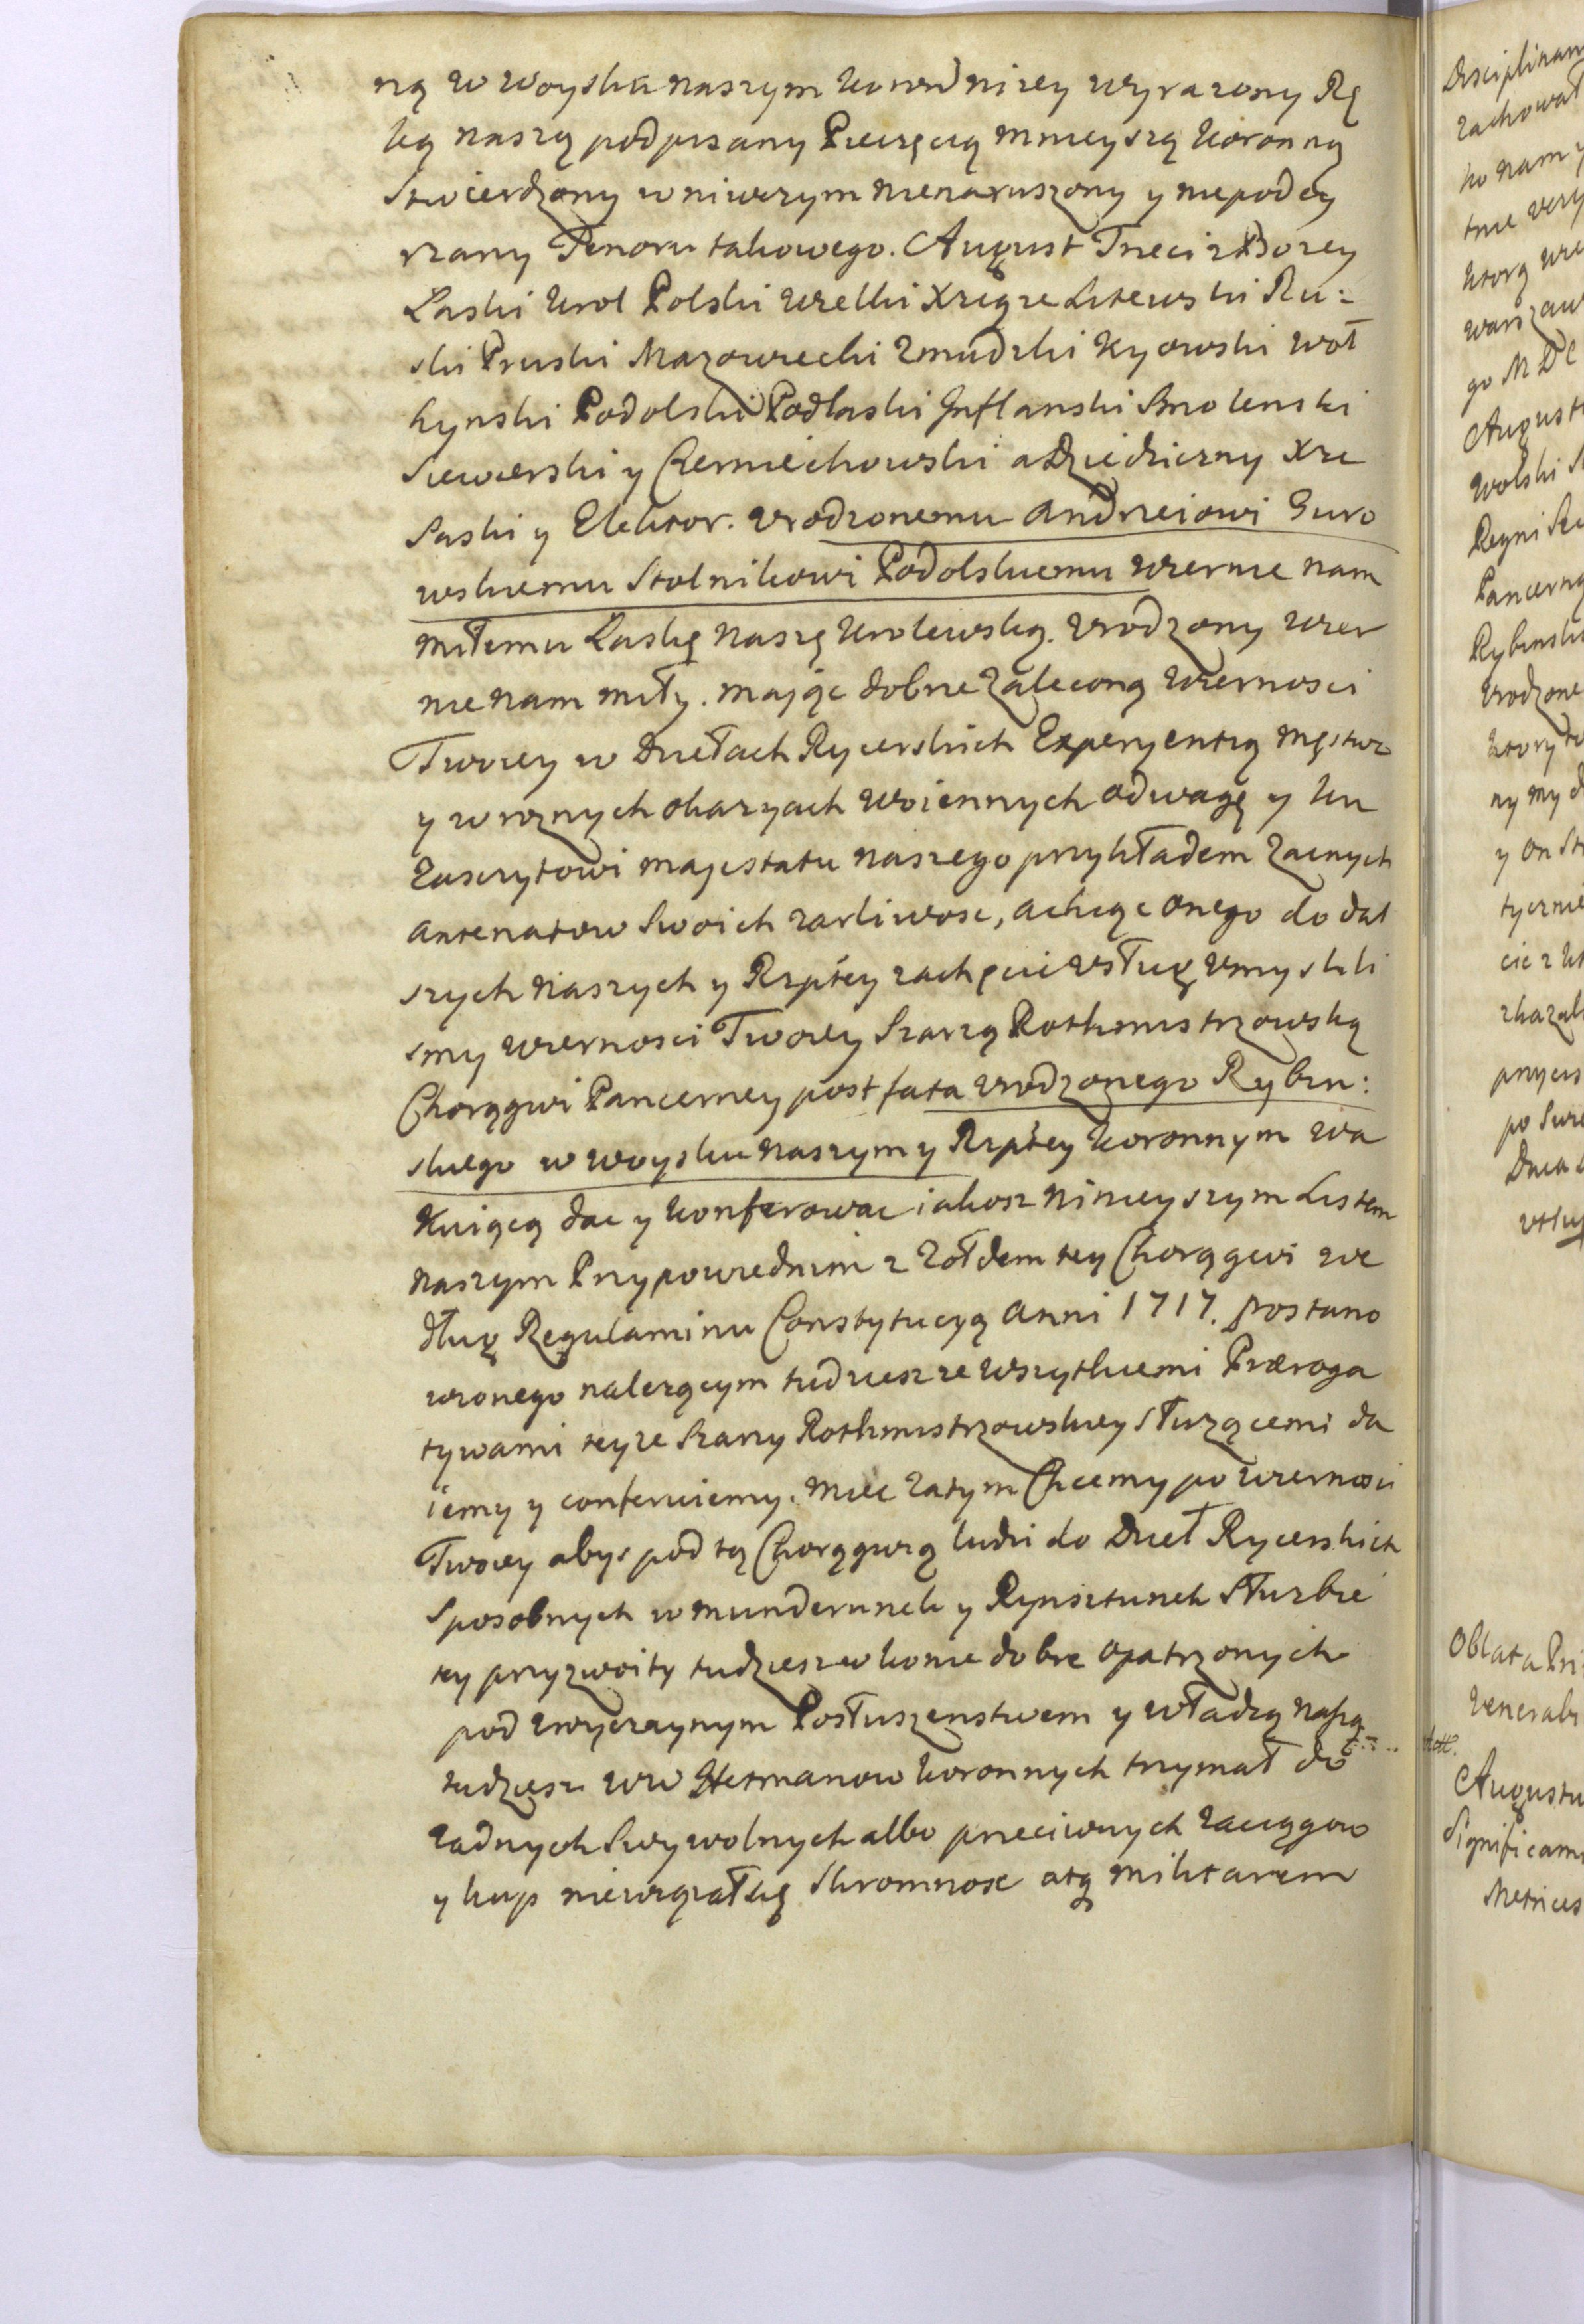 ną w woysku naszym komu niżey wyrazony Rę
ką naszą podpisany Pieczęcią mnieyszą koronną
stwierdzony w niwczym nienaruszony y niepodey
rzany Tenoru takowego. August Trzeci z Bozey
Łaski krol Polski Wielki Xsiąze Litewski Ru:
ski Pruski Mazowiecki Zmudzki Kyowski Woł
hynski Podolski Podlaski Inflanski Smolenski
Siewierski y Czerniechowski a Dziedziczny Xze
Saski y Elektor. Urodzonemu Andrzeiowi Guro
wskiemu Stolnikowi Podolskiemu Wiernie nam
miłemu Łaskę naszę krolewską. Urodzony Wier
nie nam miły. Mając dobrze zaleconą Wiernosci
Twoiey w Dziełach Rycerskich Experyentią męstwo
y w roznych okazyach Woiennych odwagę y ku
zaszczytowi majestatu naszego przykładem zacnych
antenatow Swoich zarliwosc, a chcąc onego do dal
szych naszych y Rzptey zachęcic usług umyslili
smy Wiernosci Twoiey Szarzą Rothmistrzowską
Chorągwi Pancerney post fata Urodzonego Rybin:
skiego w woysku naszym y Rzptey koronnym Wa
kuiącą dac y konferowac iakosz ninieyszym Listem
naszym Przypowiednim z Zołdem tey Chorągwi we
dług Regulaminu Constytucyą anni 1717. postano
wionego nalezącym tudziesz ze wszytkiemi Præroga
tywami teyze Szarzy Rothmistrzowskiey słuzącemi da
iemy y conferuiemy. Miec zatym Chcemy po Wiernosci
Twoiey abys pod tą Chorągwią ludzi do Dzieł Rycerskich
sposobnych w munderunek y Rynsztunek Słuzbie
tey przyzwoity tudziesz w konie dobre opatrzonych
pod zwyczaynym Posłuszenstwem y władzą naszą
tudziesz WW Hetmanow koronnych trzymał do
zadnych Swywolnych albo przeciwnych zaciągow
y kup niewiązał się Skromnosc atq militarem